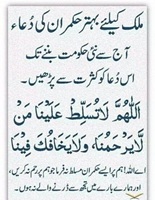 ملک کیلئے بہتر حکمران کی دُعاء
آج سے نئی حکومت بننے تک
اس دُعا کو کثرت سے پڑھیں۔
اَللّٰهُمَّ لَا تُسَلِّطْ عَلَيْنَا مَنْ
لَا يَرْحَمُنَا وَلَا يَخَافُكَ فِيْنَا
اے اللہ! ہم پر ایسے حکمران مسلط نہ فرما جو ہم پر رحم نہ کریں،
اور ہمارے بارے میں تجھ سے ڈرنے والے نہ ہوں۔